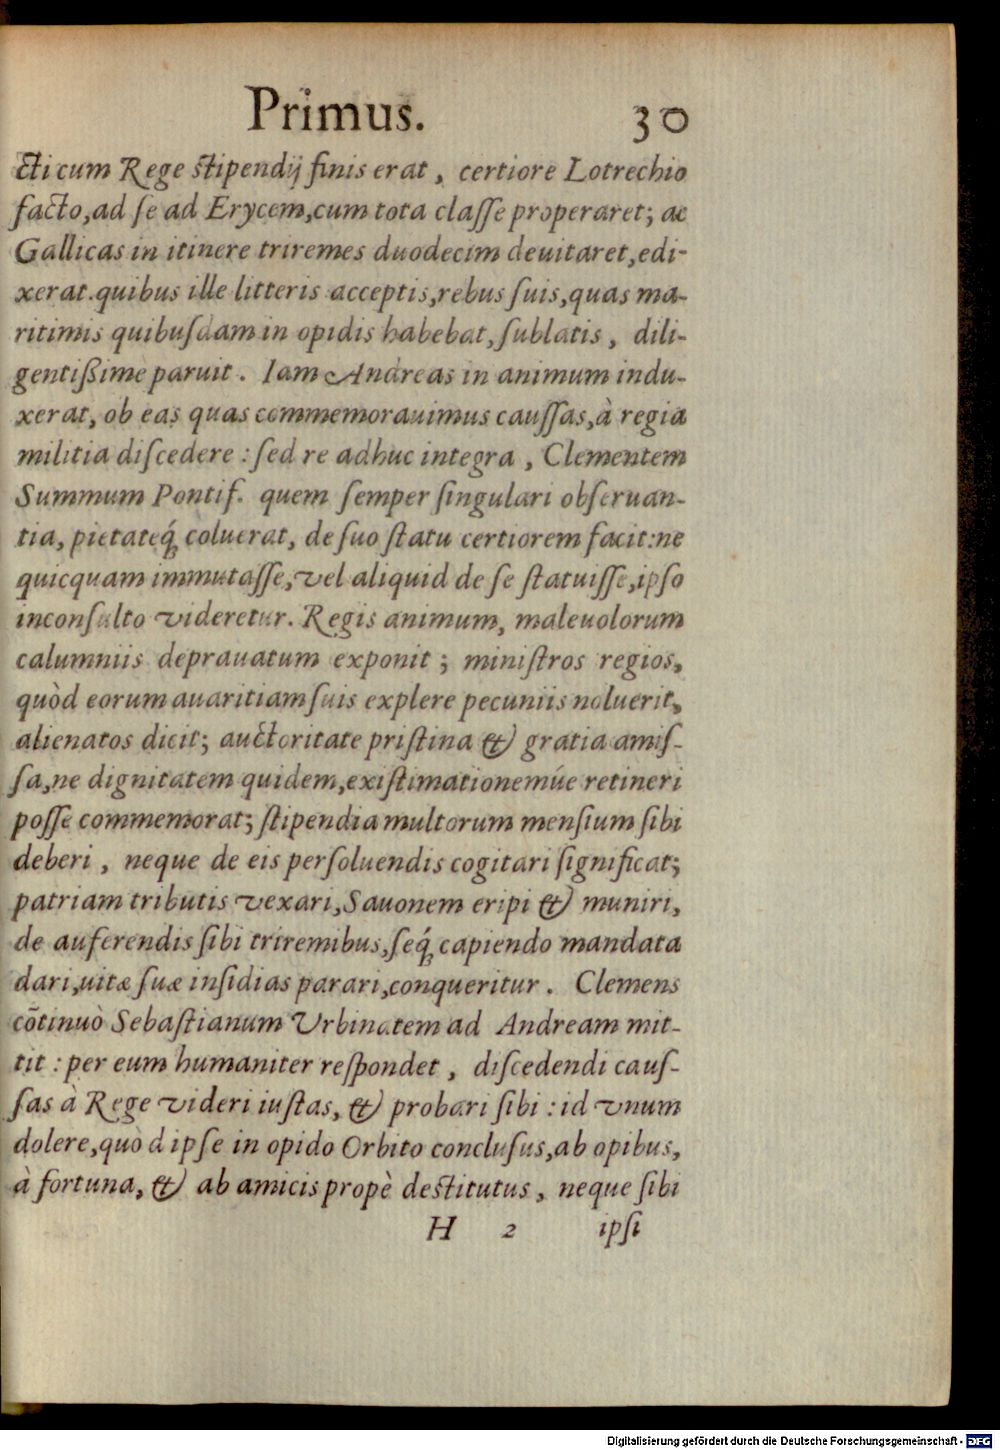 Primus. 30
cti cum Rege stipendij finis erat, certiore Lotrechio
facto, ad ſe ad Erycem, cum tota claſſe properaret; ac
Gallicas in itinere triremes duodecim deuitaret, edi-
xerat. quibus ille litteris acceptis, rebus ſuis, quas ma-
ritimis quibuſdam in opidis habebat, ſublatis, dili-
gentißime paruit. Iam Andreas in animum indu-
xerat, ob eas quas commemorauimus cauſſas, à regia
militia diſcedere: ſed re adhuc integra, Clementem
Summum Pontif. quem ſemper ſingulari obſeruan-
tia, pietateq́; coluerat, de ſuo ſtatu certiorem facit: ne
quicquam immutaſſe, vel aliquid de ſe ſtatuiſſe, ipſo
inconſulto videretur. Regis animum, maleuolorum
calumniis deprauatum exponit; miniſtros regios,
quòd eorum auaritiam ſuis explere pecuniis noluerit,
alienatos dicit; auctoritate priſtina & gratia amiſ-
ſa, ne dignitatem quidem, exiſtimationemúe retineri
poſſe commemorat; ſtipendia multorum menſium ſibi
deberi, neque de eis perſoluendis cogitari ſignificat;
patriam tributis vexari, Sauonem eripi & muniri,
de auferendis ſibi triremibus, ſeq́; capiendo mandata
dari, uitæ ſuæ inſidias parari, conqueritur. Clemens
cõtinuò Sebaſtianum Vrbinatem ad Andream mit-
tit: per eum humaniter reſpondet, diſcedendi cauſ-
ſas à Rege videri iuſtas, & probari ſibi: id vnum
dolere, quòd ipſe in opido Orbito concluſus, ab opibus,
à fortuna, & ab amicis propè destitutus, neque ſibi
H 2 ipſi
Digitalisierung gefördert durch die Deutsche Forschungsgemeinschaft - DFG